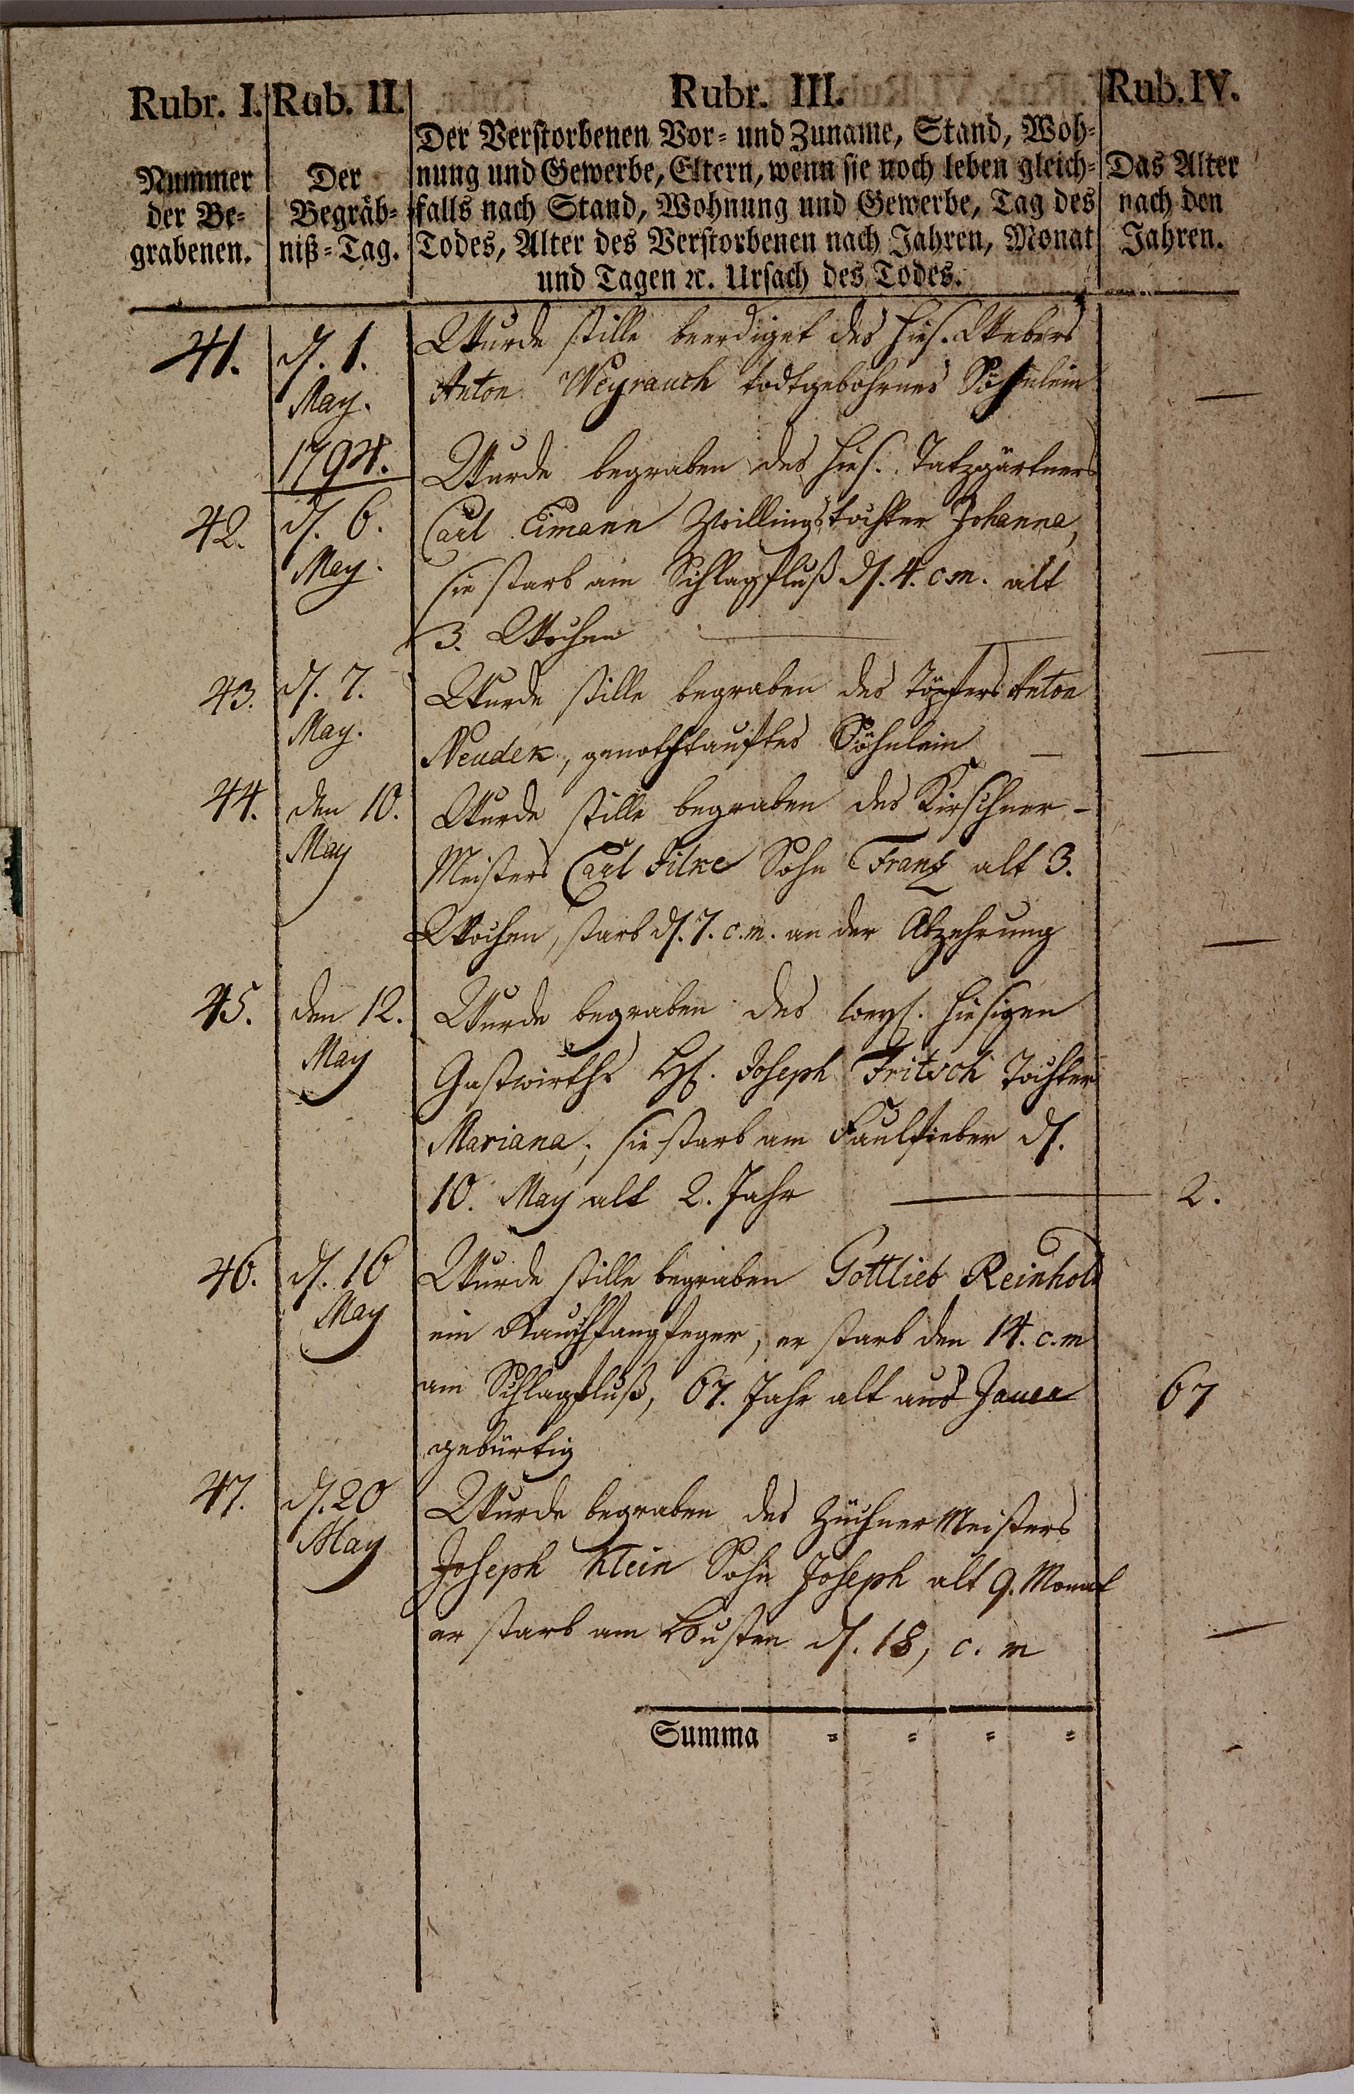 Rubr. I. Rub. II. Rubr. III. Rub. IV.
Nummer der Begrabenen.
Der Begräbniß-Tag.
Der Verstorbenen Vor- und Zuname, Stand, Woh-
nung und Gewerbe, Eltern, wenn sie noch leben gleich-
falls nach Stand, Wohnung und Gewerbe, Tag des
Todes, Alter des Verstorbenen nach Jahren, Monat
und Tagen ꝛc. Ursach des Todes.
Das Alter
nach den
Jahren.
41. d. 1. Wurde stille beerdiget des hies. Webers
May. Anton Weyrauch todtgebohrnes Söhnlein —
1794. Wurde begraben des hies. gärtners
42. d. 6. Carl Eimann Zwillingstochter Johanna,
May. sie starb am Schlagfluß d. 4. c.m. alt
3. Wochen —
43. d. 7. Wurde stille begraben des Töpfers Anton
May. Neudek, genothtauftes Söhnlein —
44. den 10. Wurde stille begraben des Kirschner-
May Meisters Carl Filke Sohn Franz alt 3.
Wochen, starb d. 7. c.m. an der Abzehrung —
45. den 12. Wurde begraben des weyl. hiesigen
May Gastwirths H. Joseph Fritsch Tochter
Mariana, sie starb am Faulfieber d.
10. May alt 2. Jahr — 2.
46. d. 16 Wurde stille begraben Gottlieb Reinhold
May ein Rauchfangfeger, er starb den 14. c.m
am Schlagfluß, 67. Jahr alt aus Jauer 67
gebürtig
47. d. 20 Wurde begraben des Züchner Meisters
May Joseph Klein Sohn Joseph alt 9. Monat
er starb am Husten d. 18, c. m —
Summa = = = = -